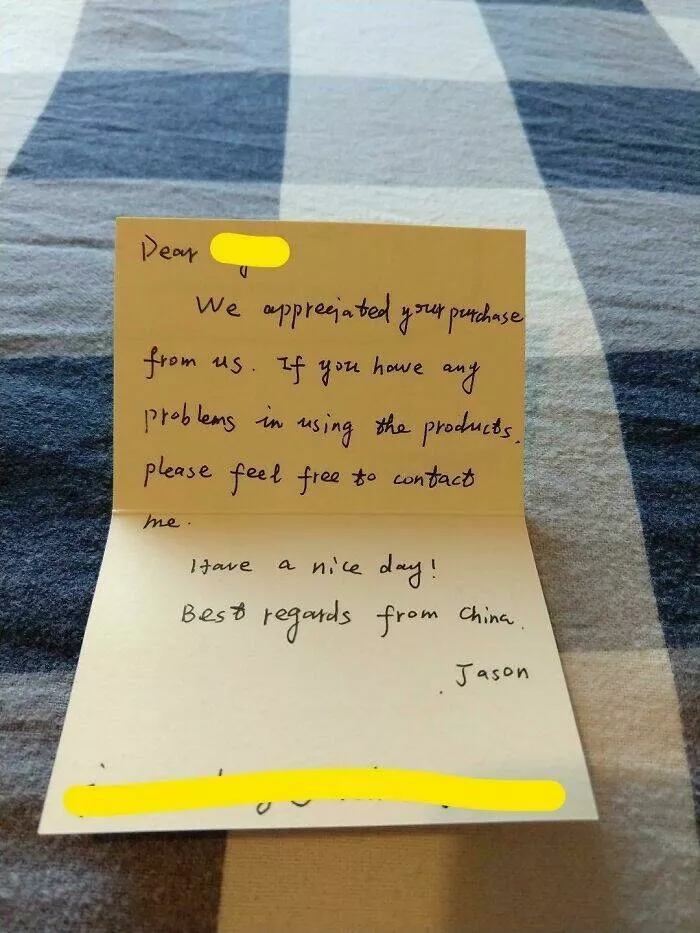 Dear
We appreciated your purchase
from us. If you have any
problems in using the products,
please feel free to contact
me.
Have a nice day!
Best regards from China.
Jason